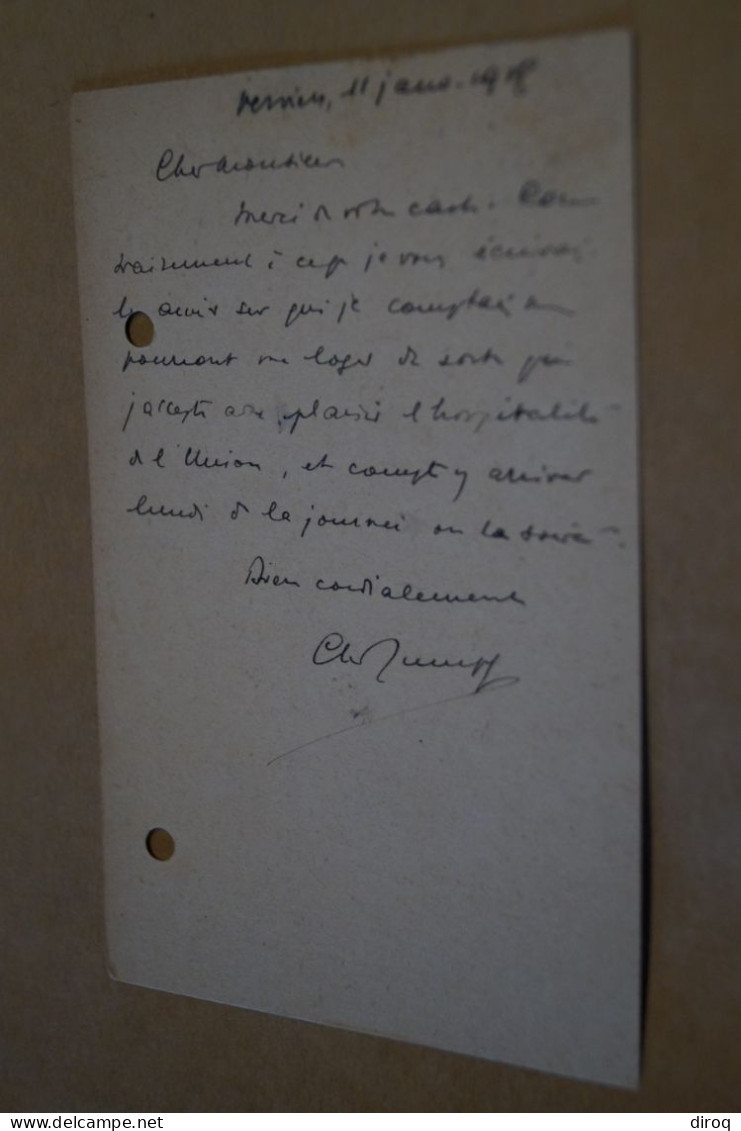 Verviers, 11 janv.
Cher Monsieur
Merci de votre carte. Con-
trairement à ce que je vous écrivais
les amis sur qui je comptais ne
pourront me loger de sorte que
j'accepte avec plaisir l'hospitalité
de l'Union, et compte y arriver
lundi ds la journée ou la soirée.
Bien cordialement
© www.delcampe.net
diroq